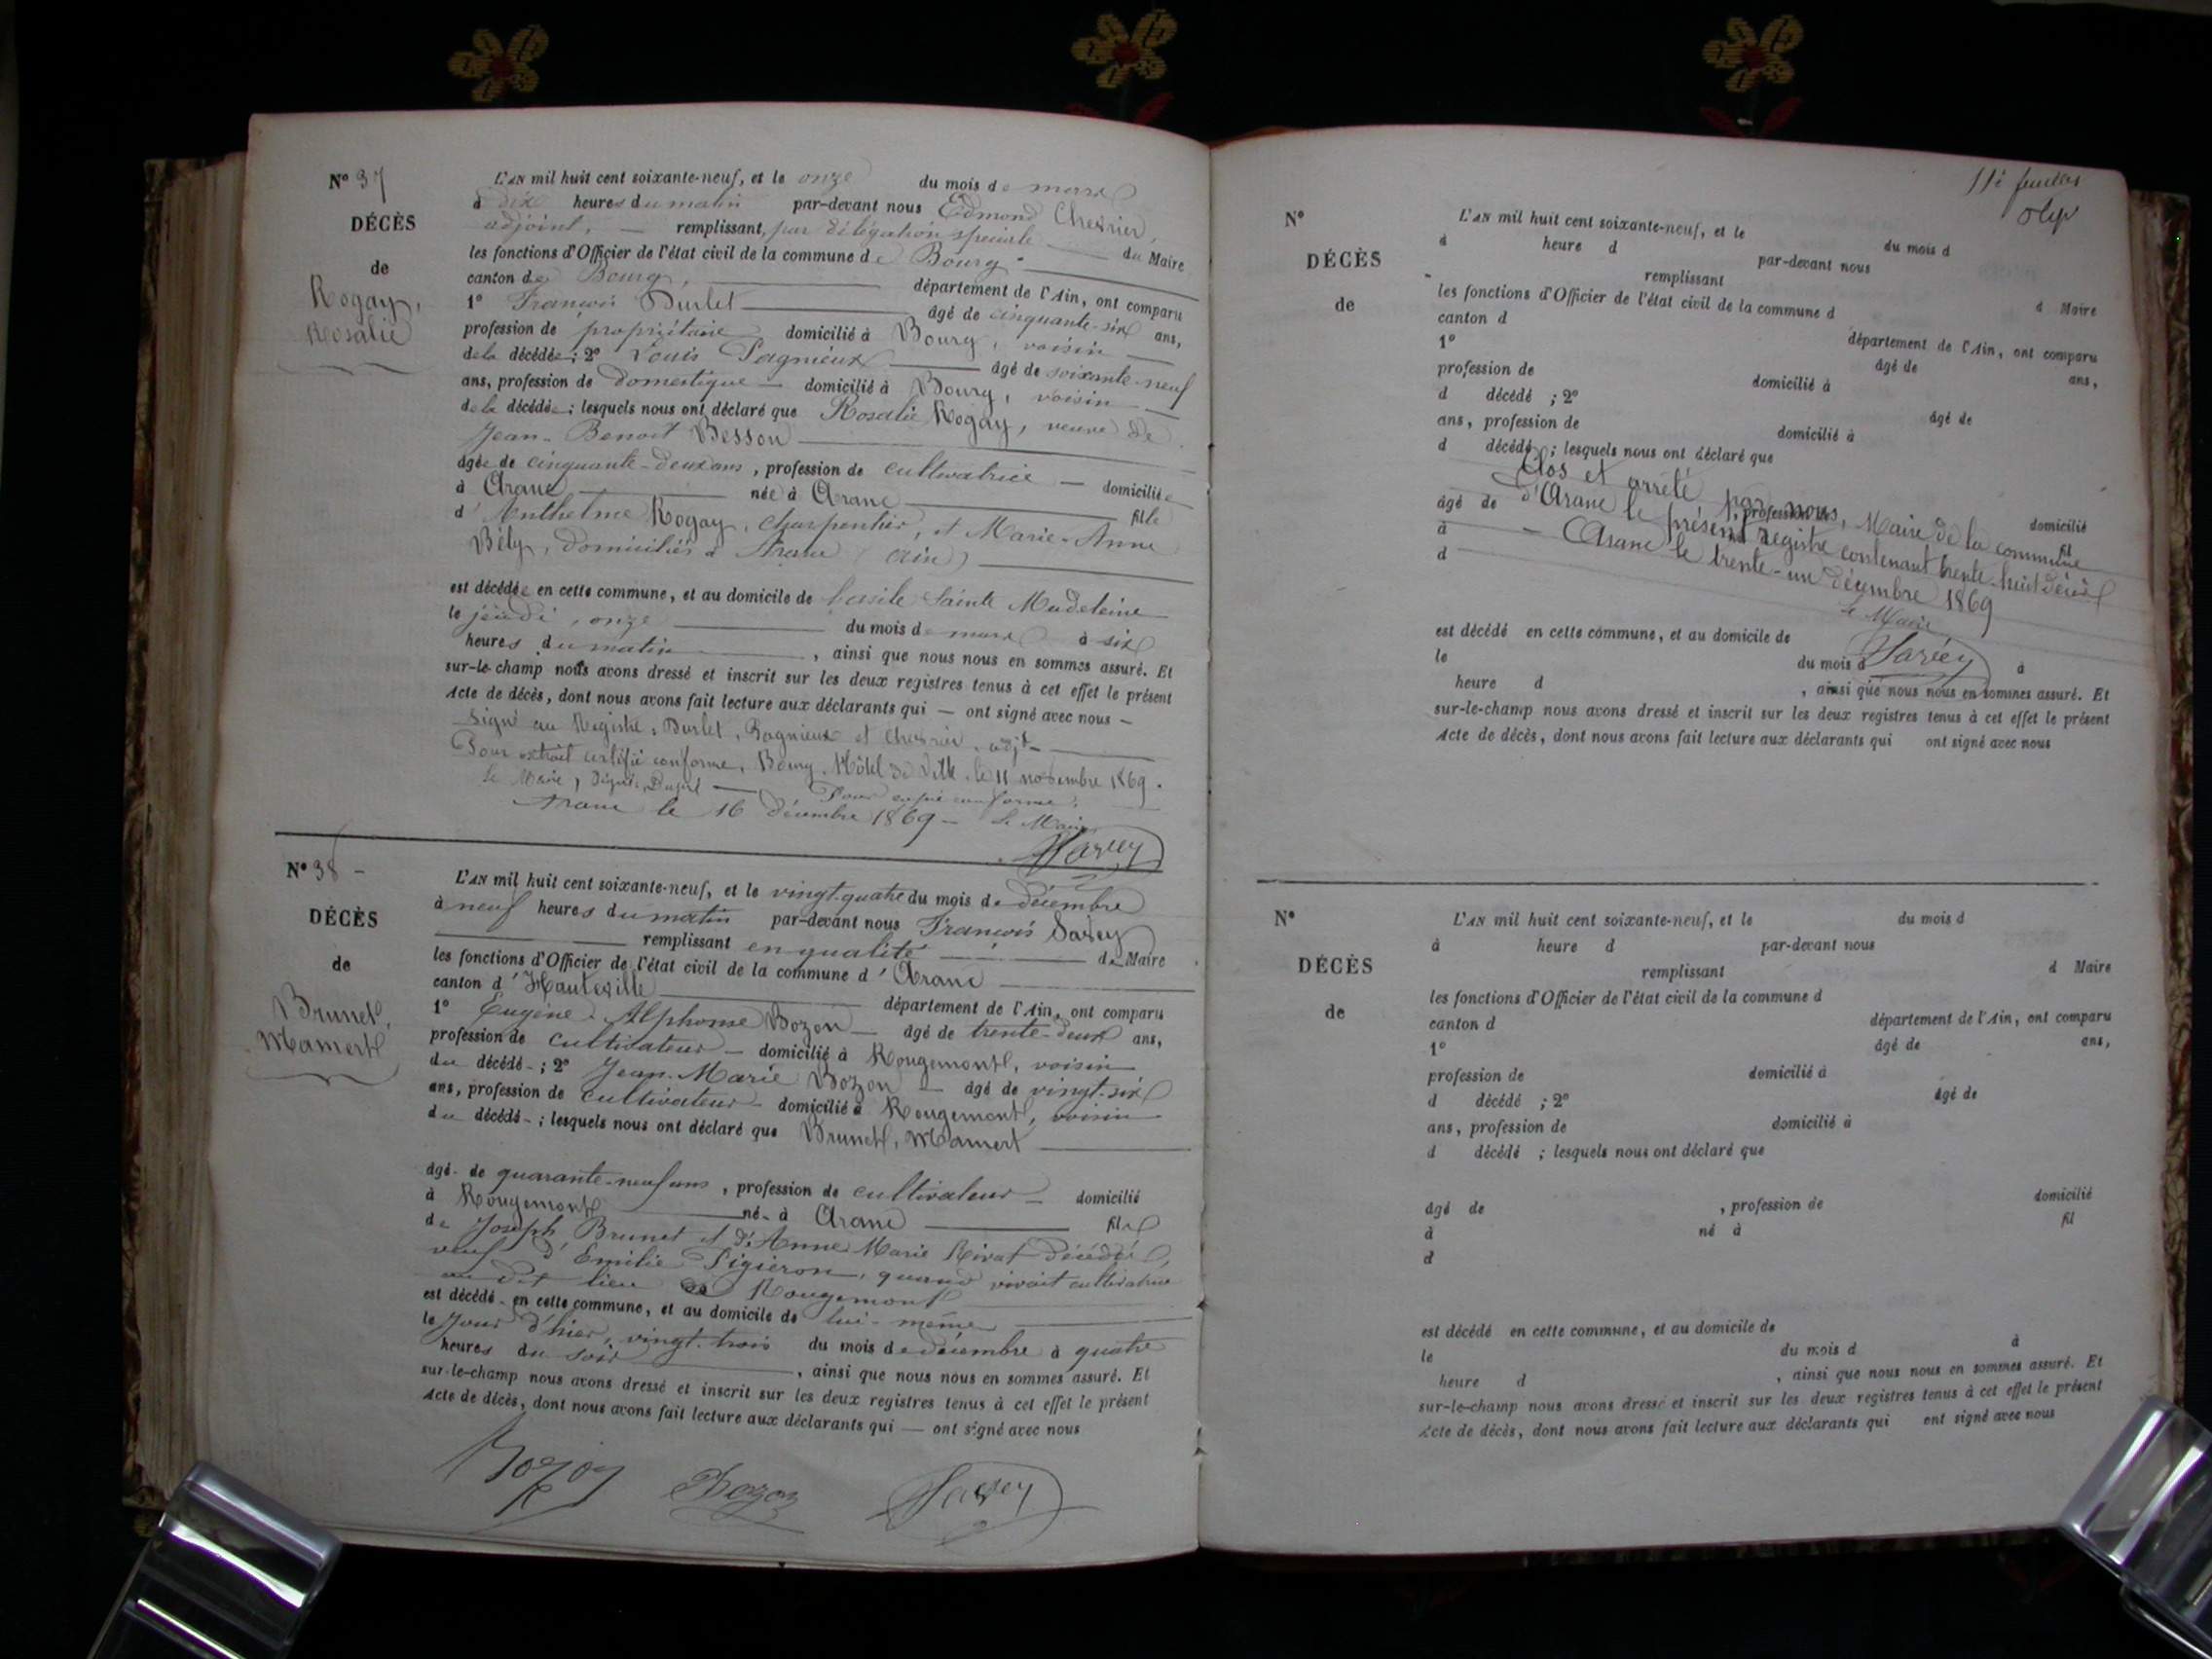 N° 37
DÉCÈS
de
Rogay,
Rosalie
L'AN mil huit cent soixante-neuf, et le onze du mois de mars
à dix heures du matin par-devant nous Edmond Chevrier,
adjoint, remplissant, par délégation spéciale du Maire
les fonctions d'Officier de l'état civil de la commune de Bourg
canton de Bourg, département de l'Ain, ont comparu
1° François Durlet âgé de cinquante-six ans,
profession de propriétaire domicilié à Bourg, voisin
de la décédée; 2° Louis Pagnieux âgé de soixante-neuf
ans, profession de domestique domicilié à Bourg, voisin
de la décédée; lesquels nous ont déclaré que Rosalie Rogay, veuve de
Jean-Benoit Besson
âgée de cinquante-deux ans, profession de cultivatrice domiciliée
à Aranc née à Aranc fille
d'Anthelme Rogay, charpentier, et Marie-Anne
Bély, domiciliés à Aranc (Ain)
est décédée en cette commune, et au domicile de l'asile Sainte Madeleine
le jeudi, onze du mois de mars à six
heures du matin, ainsi que nous nous en sommes assuré. Et
sur-le-champ nous avons dressé et inscrit sur les deux registres tenus à cet effet le présent
Acte de décès, dont nous avons fait lecture aux déclarants qui — ont signé avec nous —
Signé au Registre, Durlet, Pagnieux et Chevrier, adjt
Pour extrait certifié conforme, Bourg, Hôtel de Ville, le 11 novembre 1869.
Le Maire, Pour copie conforme,
Aranc le 16 décembre 1869 — Le Maire
Savey
N° 38 -
DÉCÈS
de
Brunet,
Mamert
L'AN mil huit cent soixante-neuf, et le vingt-quatre du mois de décembre
à neuf heures du matin par-devant nous François Savey
remplissant en qualité de Maire
les fonctions d'Officier de l'état civil de la commune d'Aranc
canton d'Hauteville département de l'Ain, ont comparu
1° Eugène-Alphonse Bozon âgé de trente-deux ans,
profession de cultivateur domicilié à Rougemont, voisin
du décédé; 2° Jean-Marie Bozon âgé de vingt-six
ans, profession de cultivateur domicilié à Rougemont, voisin
du décédé; lesquels nous ont déclaré que Brunet, Mamert
âgé de quarante-neuf ans, profession de cultivateur domicilié
à Rougemont né à Aranc fils
de Joseph Brunet et d'Anne Marie Rivat décédés,
veuf d'Emilie Pigieron, quand vivait cultivatrice
au dit lieu de Rougemont
est décédé en cette commune, et au domicile de lui-même
le Jour d'hier, vingt-trois du mois de décembre à quatre
heures du soir, ainsi que nous nous en sommes assuré. Et
sur-le-champ nous avons dressé et inscrit sur les deux registres tenus à cet effet le présent
Acte de décès, dont nous avons fait lecture aux déclarants qui — ont signé avec nous
Bozon Bozon Savey
N°
DÉCÈS
de
L'AN mil huit cent soixante-neuf, et le du mois d
à heure d par-devant nous
remplissant d Maire
les fonctions d'Officier de l'état civil de la commune d
canton d département de l'Ain, ont comparu
1° âgé de ans,
profession de domicilié à
d décédé ; 2° âgé de
ans, profession de domicilié à
d décédé ; lesquels nous ont déclaré que
Clos et arrêté par nous, Maire de la commune
d'Aranc le présent registre contenant trente-huit décès
Aranc le trente-un décembre 1869
Le Maire
Savey
âgé de , profession de domicilié
à fil
d
est décédé en cette commune, et au domicile de
le du mois d à
heure d , ainsi que nous nous en sommes assuré. Et
sur-le-champ nous avons dressé et inscrit sur les deux registres tenus à cet effet le présent
Acte de décès, dont nous avons fait lecture aux déclarants qui ont signé avec nous
N°
DÉCÈS
de
L'AN mil huit cent soixante-neuf, et le du mois d
à heure d par-devant nous
remplissant d Maire
les fonctions d'Officier de l'état civil de la commune d
canton d département de l'Ain, ont comparu
1° âgé de ans,
profession de domicilié à
d décédé ; 2° âgé de
ans, profession de domicilié à
d décédé ; lesquels nous ont déclaré que
âgé de , profession de domicilié
à né à fil
d
est décédé en cette commune, et au domicile de
le du mois d à
heure d , ainsi que nous nous en sommes assuré. Et
sur-le-champ nous avons dressé et inscrit sur les deux registres tenus à cet effet le présent
Acte de décès, dont nous avons fait lecture aux déclarants qui ont signé avec nous